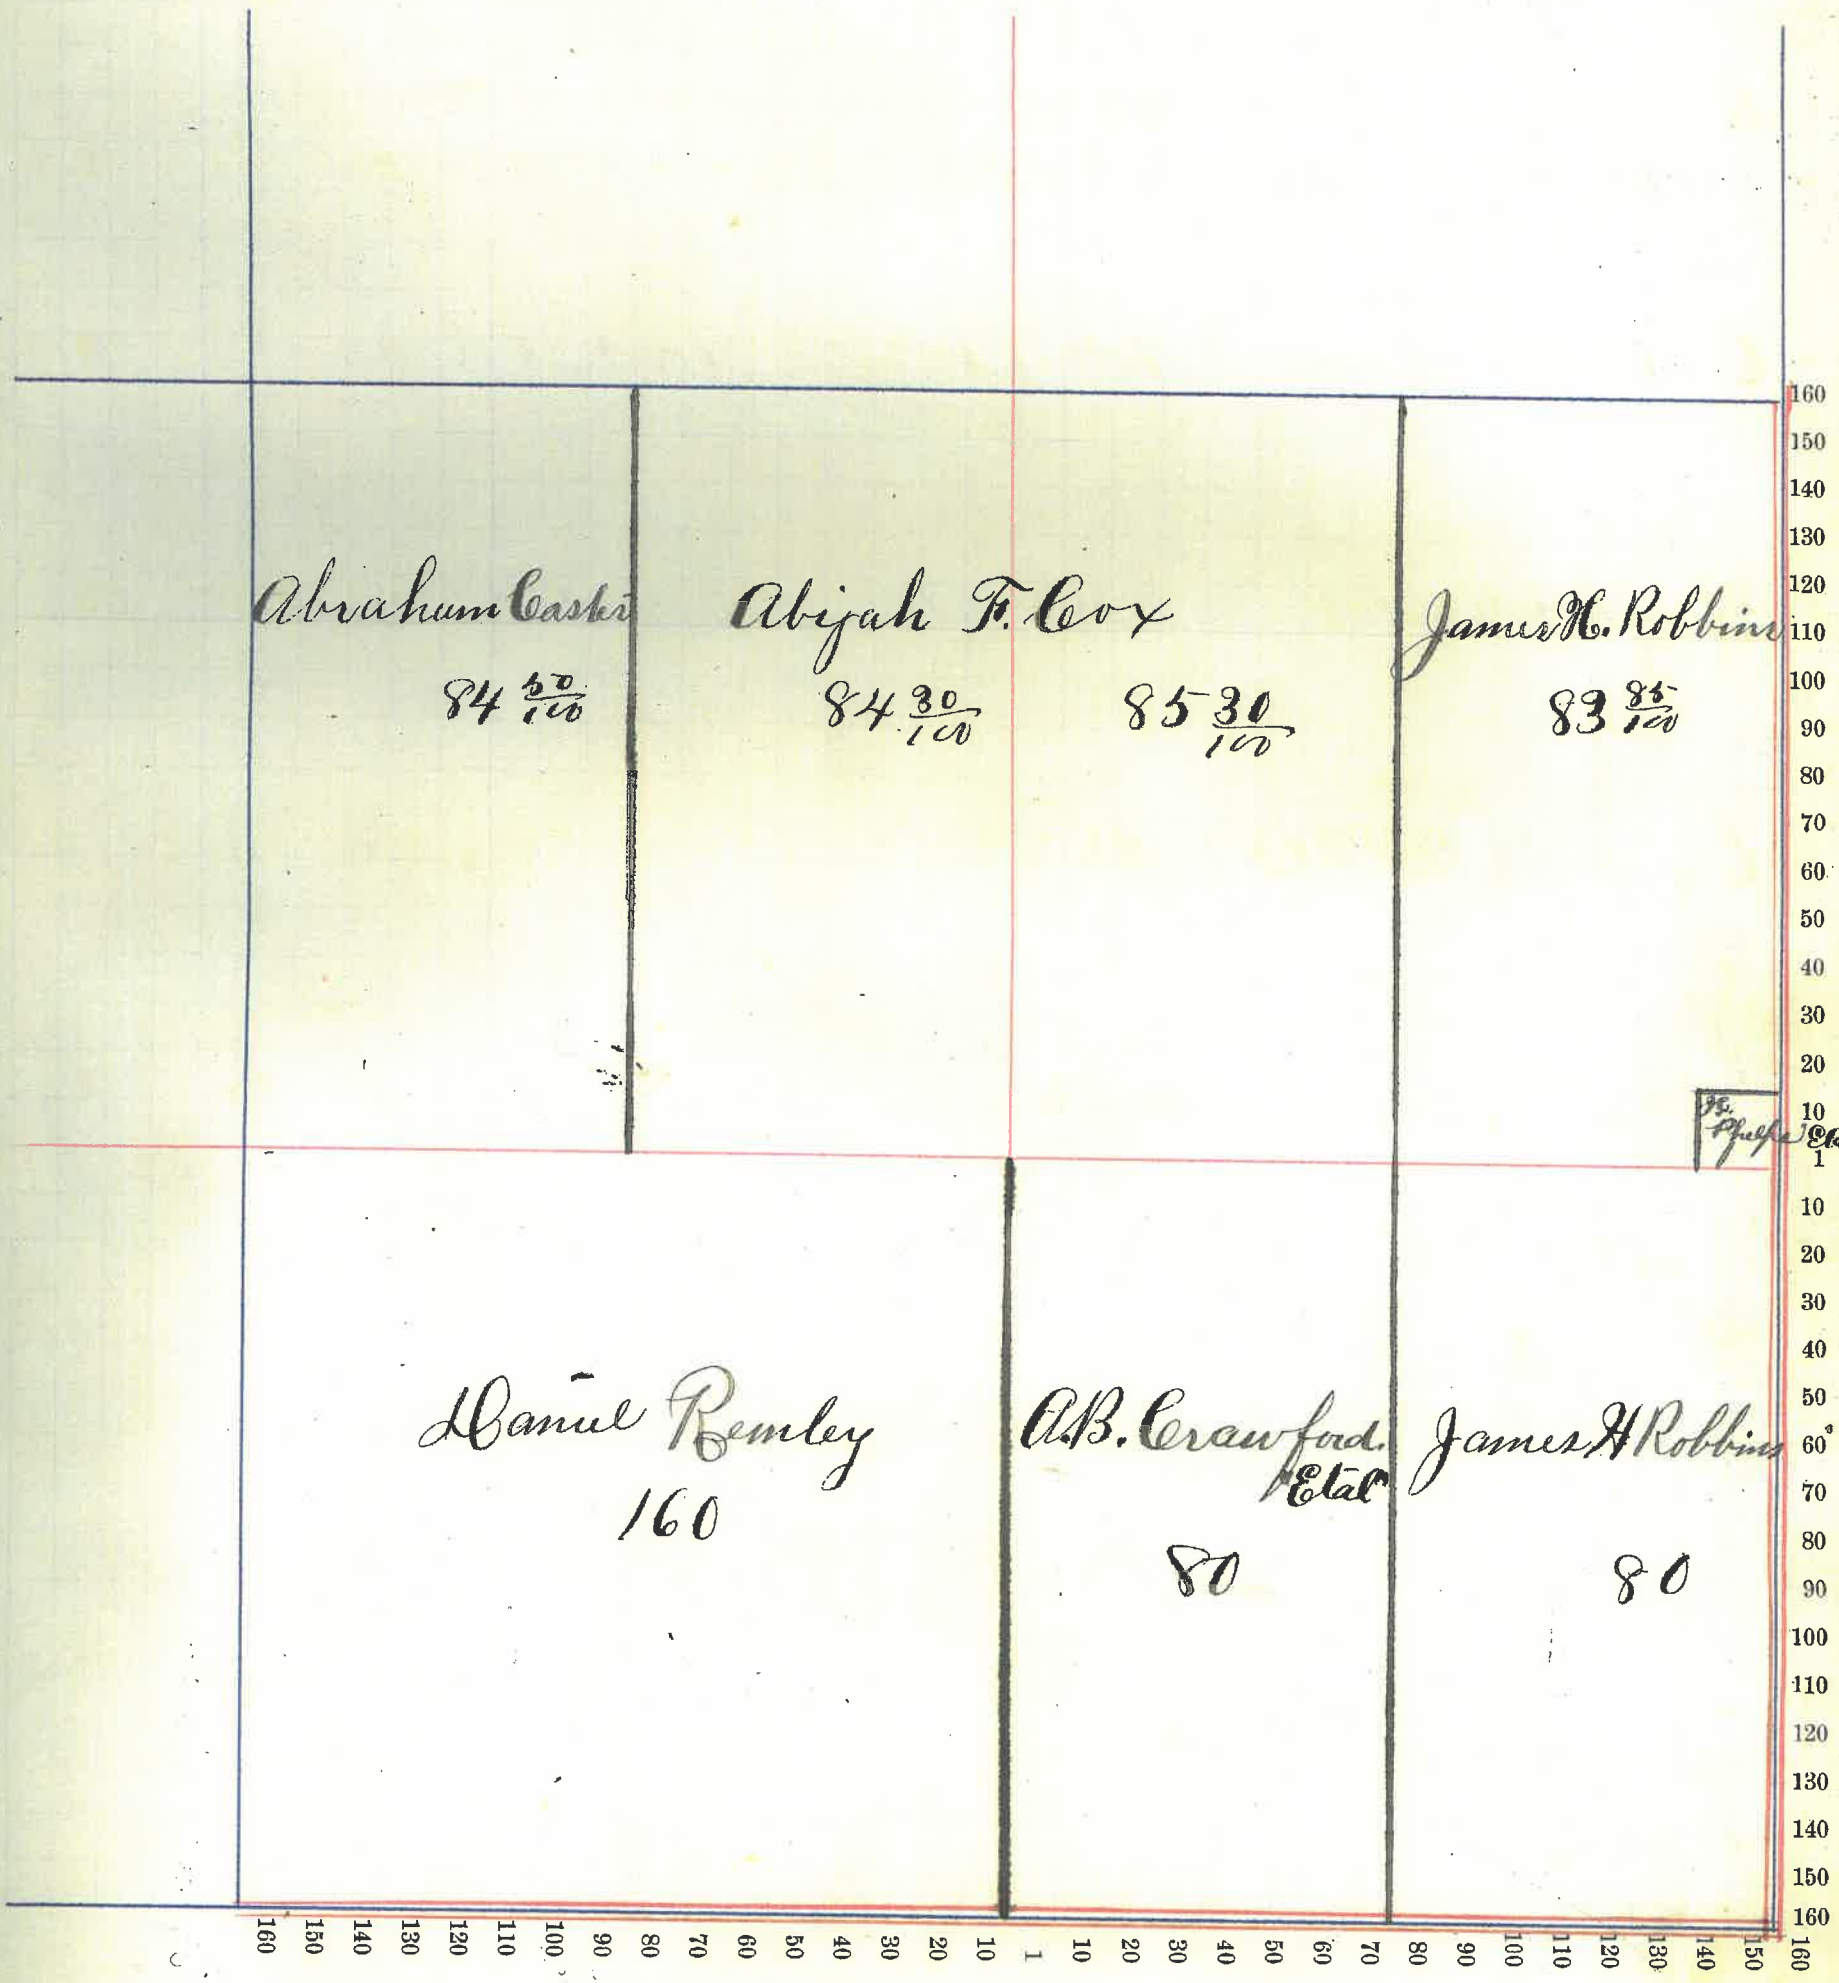 Abraham
84 50/100
Abijah F. Cox
84 30/100
85 30/100
James H. Robbins
83 85/100
Phelps Et
Daniel Remley
160
A.B. Crawford.
"Etal"
80
James H Robbins
80
160
150
140
130
120
110
100
90
80
70
60
50
40
30
20
10
1
10
20
30
40
50
60
70
80
90
100
110
120
130
140
150
160
160 150 140 130 120 110 100 90 80 70 60 50 40 30 20 10 1 10 20 30 40 50 60 70 80 90 100 110 120 130 140 150 160